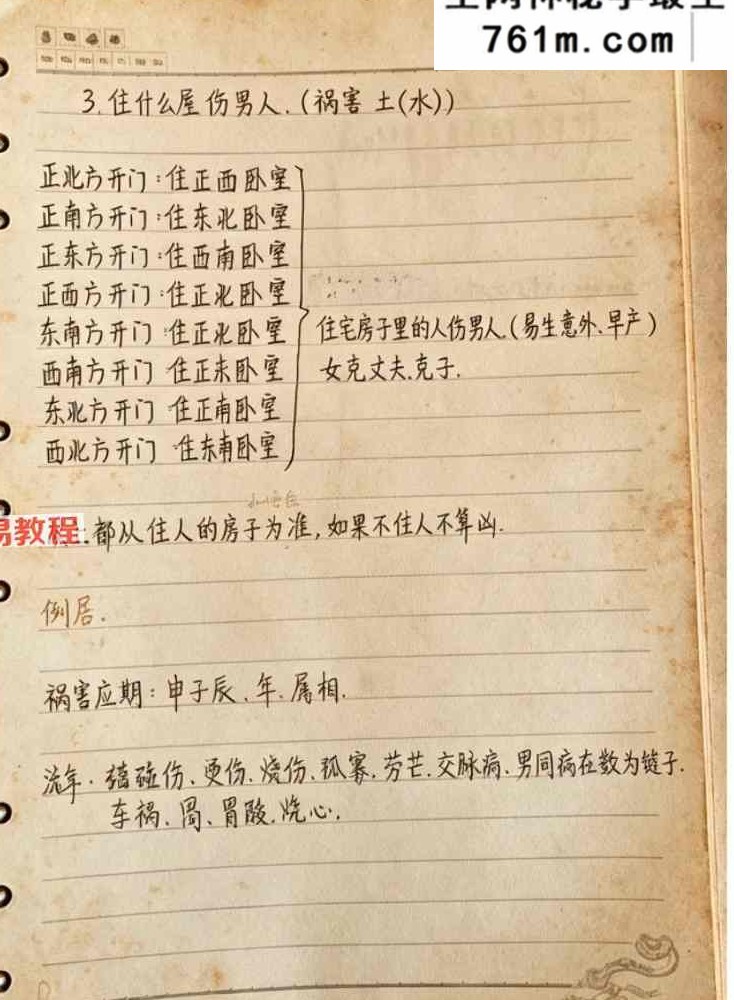 761m.com
3.住什么屋伤男人.(祸害 土(水))
正北方开门:住正西卧室
正南方开门:住东北卧室
正东方开门:住西南卧室
正西方开门:住正北卧室
东南方开门:住正北卧室
西南方开门 住正东卧室
东北方开门 住正南卧室
西北方开门 住东南卧室
住宅房子里的人伤男人.(易生意外、早产)
女克丈夫.克子.
易教程
.都从住人的房子为准,如果不住人不算凶.
例居.
祸害应期:申子辰、年、属相.
流年. 碰伤、烫伤、烧伤、孤寡、劳芒、交脉病、男同病在数为链子.
车祸、胃、胃酸、烧心.